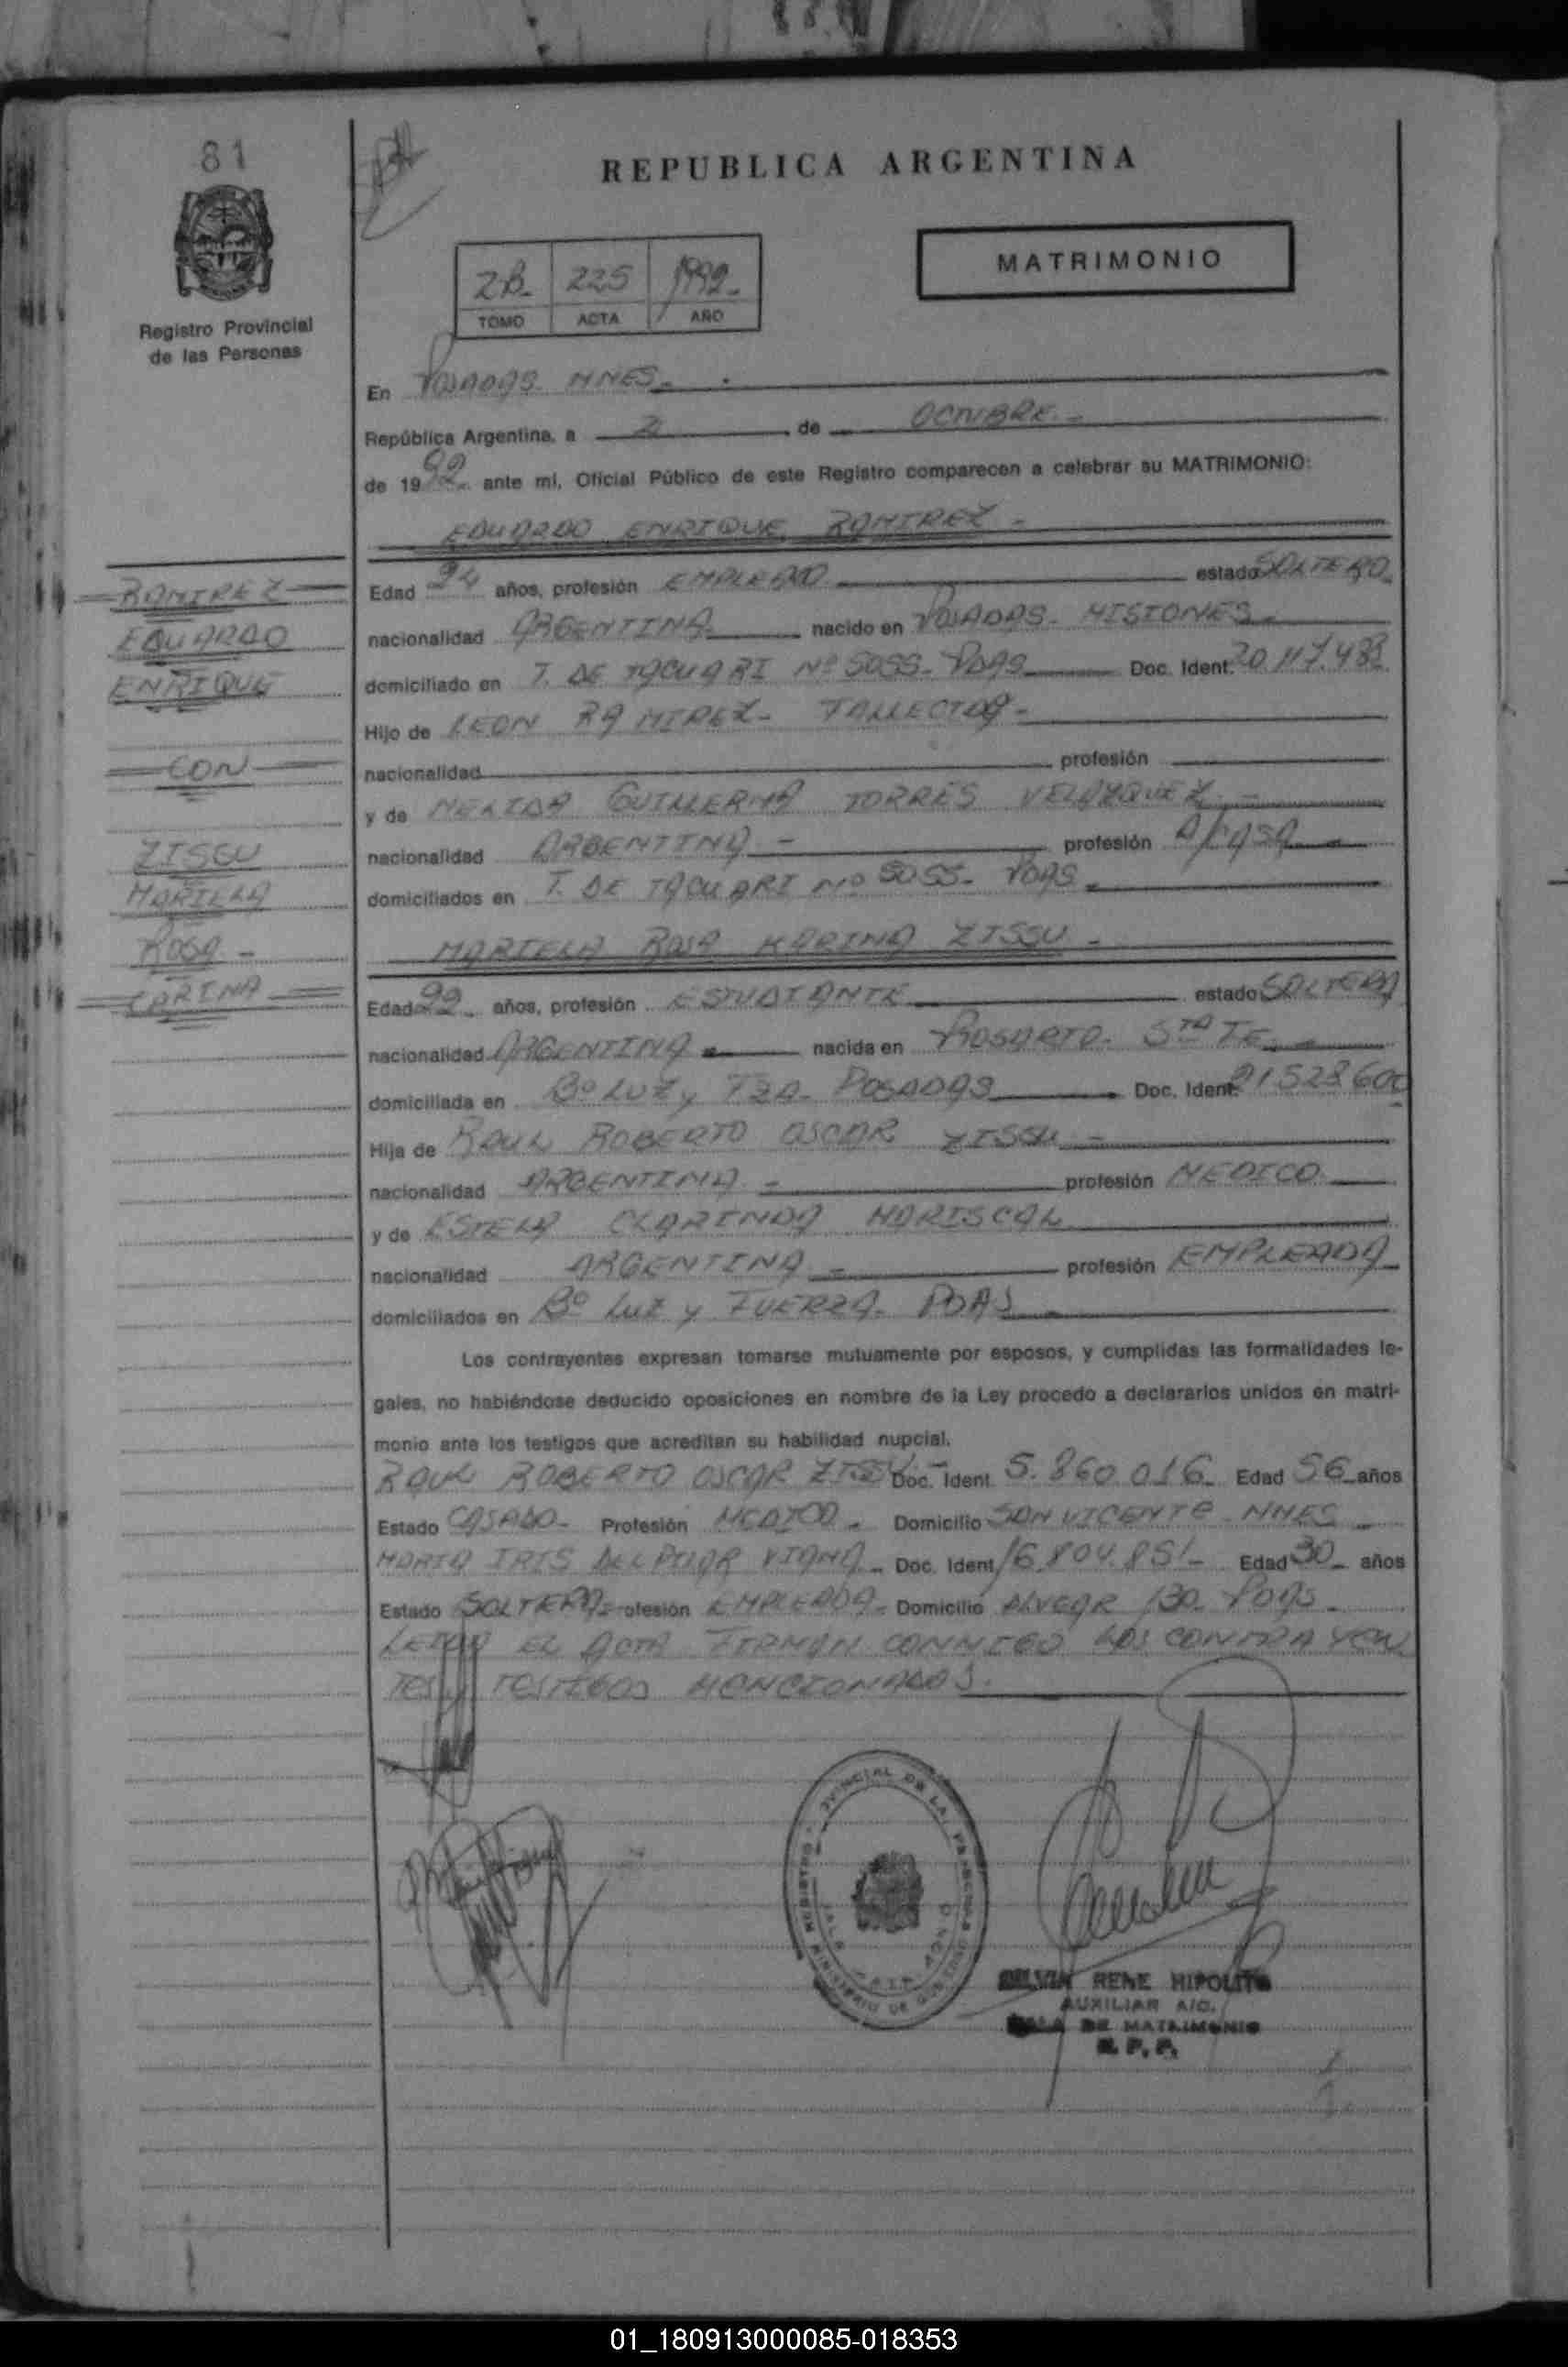 81
REPUBLICA ARGENTINA
MATRIMONIO
2B- 225 1992-
TOMO ACTA AÑO
Registro Provincial
de las Personas
En POSADAS MNES-
República Argentina, a 2 de OCTUBRE.-
de 1992- ante mi, Oficial Público de este Registro comparecen a celebrar su MATRIMONIO:
EDUARDO ENRIQUE RAMIREZ -
RAMIREZ
EDUARDO
ENRIQUE
CON
ZISSU
MARIELA
ROSA -
CARINA
Edad 24 años, profesión EMPLEADO estado SOLTERO
nacionalidad ARGENTINA- nacido en POSADAS- MISIONES-
domiciliado en T. DE TACUARI Nº 5055- PDAS Doc. Ident. 20.117.483
Hijo de LEON RAMIREZ- FALLECIDO-
nacionalidad profesión
y de NELIDA GUILLERMA TORRES VELAZQUEZ -
nacionalidad ARGENTINA - profesión A/CASA
domiciliados en T. DE TACUARI Nº 5055- PDAS-
MARIELA ROSA KARINA ZISSU -
Edad 22- años, profesión ESTUDIANTE estado SOLTERA
nacionalidad ARGENTINA - nacida en ROSARIO- STA FE-
domiciliada en Bº LUZ y FZA- POSADAS Doc. Ident. 21.523.600
Hija de RAUL ROBERTO OSCAR ZISSU -
nacionalidad ARGENTINA - profesión MEDICO
y de ESTELA CLARINDA MARISCAL
nacionalidad ARGENTINA - profesión EMPLEADA
domiciliados en Bº LUZ y FUERZA- PDAS
Los contrayentes expresan tomarse mutuamente por esposos, y cumplidas las formalidades le-
gales, no habiéndose deducido oposiciones en nombre de la Ley procedo a declararlos unidos en matri-
monio ante los testigos que acreditan su habilidad nupcial.
RAUL ROBERTO OSCAR ZISSU- Doc. Ident. 5.860.016- Edad 56 años
Estado CASADO- Profesión MEDICO- Domicilio SAN VICENTE- MNES
MARIA IRIS DEL PILAR VIANA- Doc. Ident. 16.804.851- Edad 30- años
Estado SOLTERA- Profesión EMPLEADA- Domicilio ALVEAR 130- PDAS-
LEIDA EL ACTA FIRMAN CONMIGO LOS CONTRAYEN
TES y TESTIGOS MENCIONADOS.
SILVIA RENE HIPOLITO
AUXILIAR A/C.
SALA DE MATRIMONIO
R. P. P.
01_180913000085-018353